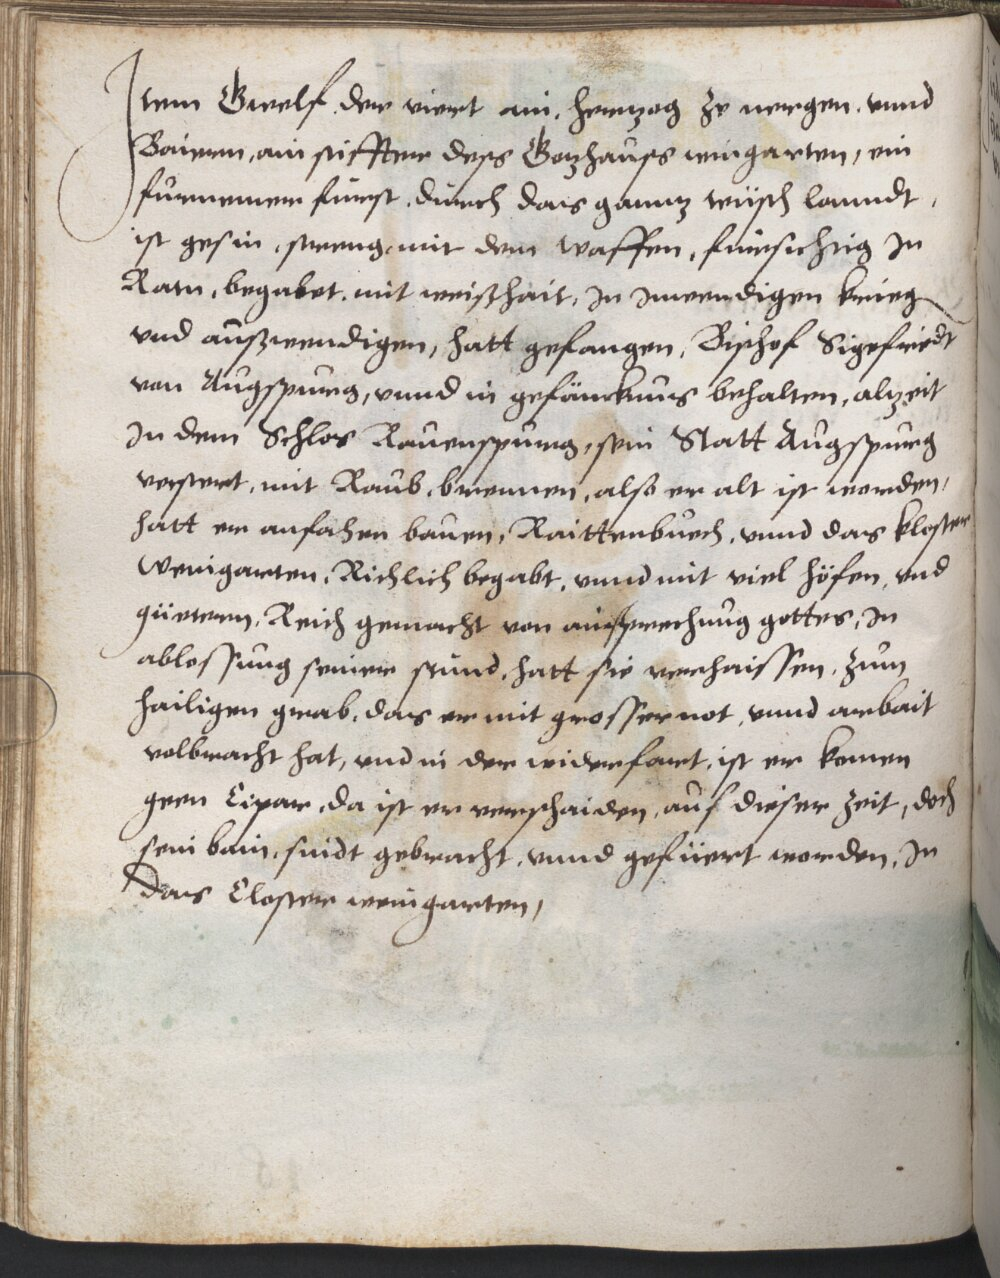 Item Gwelf. der viert ain. hertzog ze nergen. vnnd
Bairenn, ain stifftter dess Gotzhauss weingarten, ein
furnemer fürst. durch das ganntz teüsch lanndt,
ist gesin, streng mit den waffen, fürsichtig In
Ratn, begabet. mit weishait, In Inwendigen krieg
vnd ausswendigen, hatt gefangen, Bischof Sigefriedt
von Augspurg, vnnd in gefäncknus behalten, alzeit
In dem Schlos Rauenspurg, sein Statt Augspurg
verstert, mit Raub, brennen, also er alt ist worden,
hatt er anfahen bauen, Raittenbuech, vnnd das kloster
Weingarten, Richlich begabt, vnnd mit viel höfen, vnd
güetern, Reich gemacht von ainsprechung gottes, In
ablossung seiner sünd, hatt sie verhaissen, zum
hailigen grab, das er mit grosser not, vnnd arbait
volbracht hat, vnd in der widerfart, ist er komen
geen Cipar, da ist er verschaiden, auf dieser zeit, doch
sein bain, sindt gebracht, vnnd gefüert worden, In
das Closter weingarten,